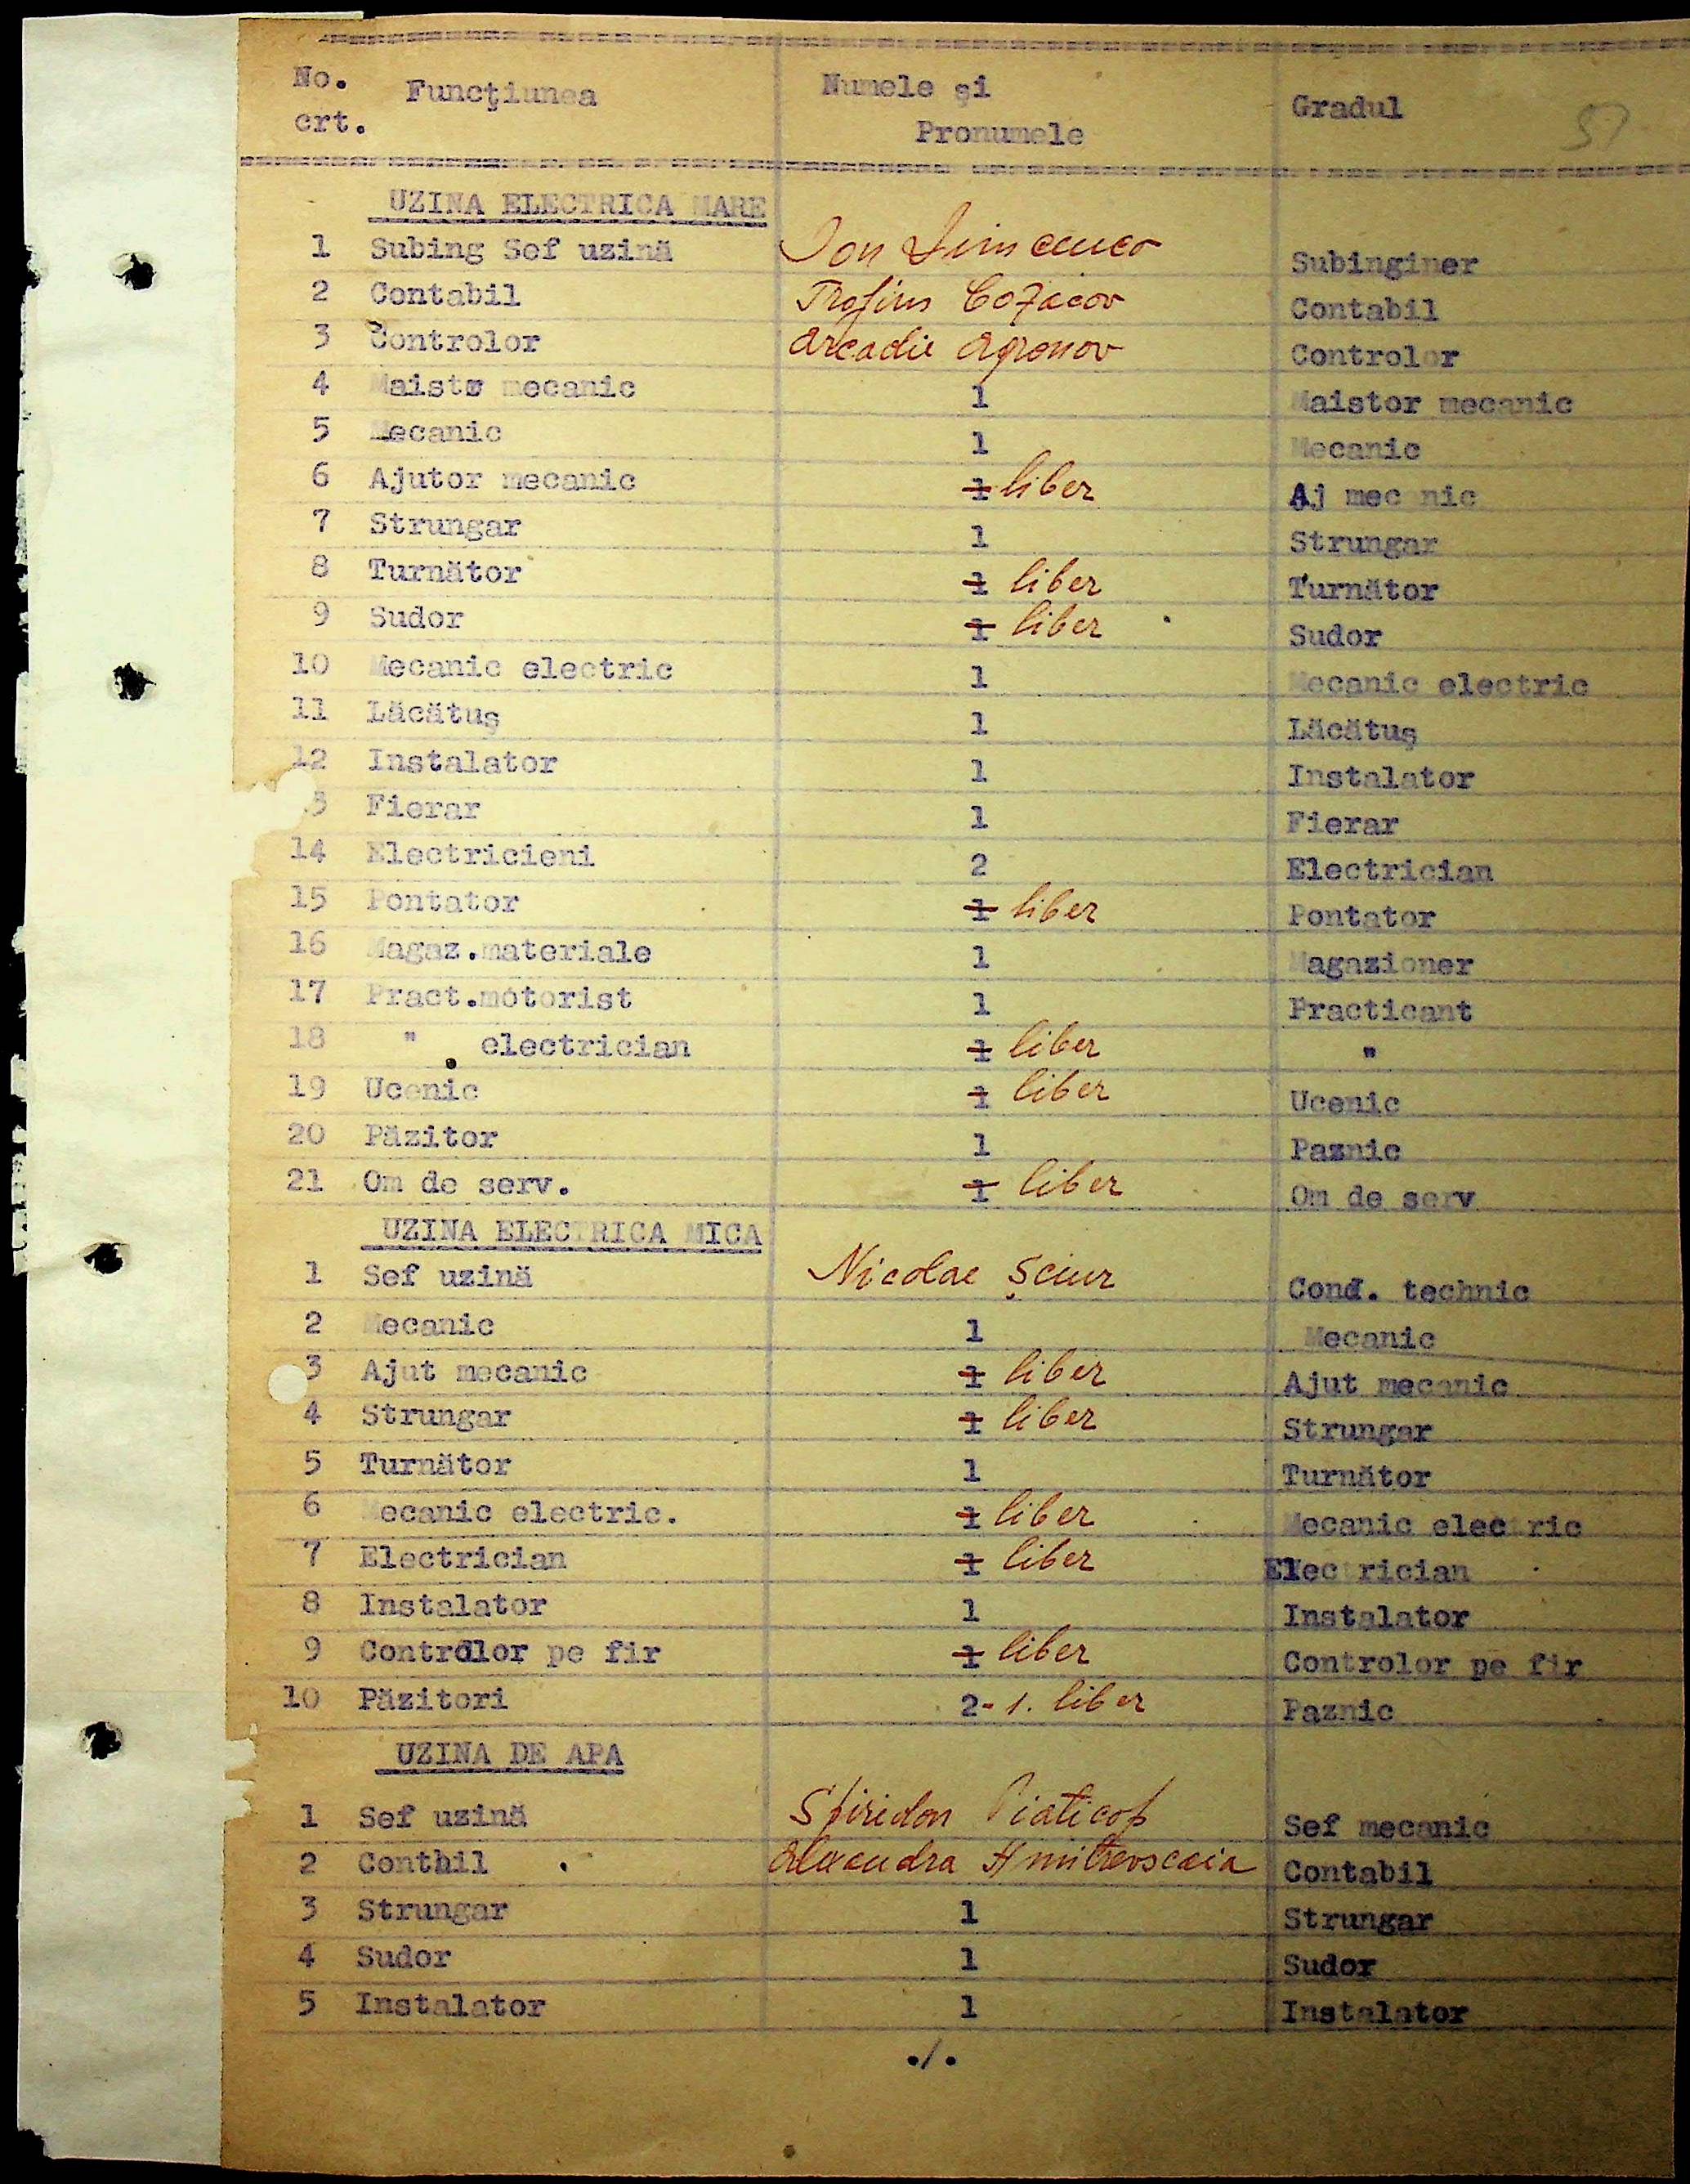 No. crt. Funcţiunea Numele şi Pronumele Gradul
57
UZINA ELECTRICA MARE
1 Subing Sef uzină Ion Subinginer
2 Contabil Trofim Cozacov Contabil
3 Controlor Arcadie Agronov Controlor
4 Maistr mecanic 1 Maistor mecanic
5 Mecanic 1 Mecanic
6 Ajutor mecanic 1 liber Aj mecanic
7 Strungar 1 Strungar
8 Turnător 1 liber Turnător
9 Sudor 1 liber Sudor
10 Mecanic electric 1 Mecanic electric
11 Lăcătuş 1 Lăcătuş
12 Instalator 1 Instalator
3 Fierar 1 Fierar
14 Electricieni 2 Electrician
15 Pontator 1 liber Pontator
16 Magaz.materiale 1 Magazioner
17 Pract.motorist 1 Practicant
18 " electrician 1 liber "
19 Ucenic 1 liber Ucenic
20 Păzitor 1 Paznic
21 Om de serv. 1 liber Om de serv
UZINA ELECTRICA MICA
1 Sef uzină Nicolae Şciur Cond. technic
2 Mecanic 1 Mecanic
3 Ajut mecanic 1 liber Ajut mecanic
4 Strungar 1 liber Strungar
5 Turnător 1 Turnător
6 Mecanic electric. 1 liber Mecanic electric
7 Electrician 1 liber Electrician
8 Instalator 1 Instalator
9 Controlor pe fir 1 liber Controlor pe fir
10 Păzitori 2-1. liber Paznic
UZINA DE APA
1 Sef uzină Spiridon Piaticop Sef mecanic
2 Contbil Alexandra Hmitrevscaia Contabil
3 Strungar 1 Strungar
4 Sudor 1 Sudor
5 Instalator 1 Instalator
./.